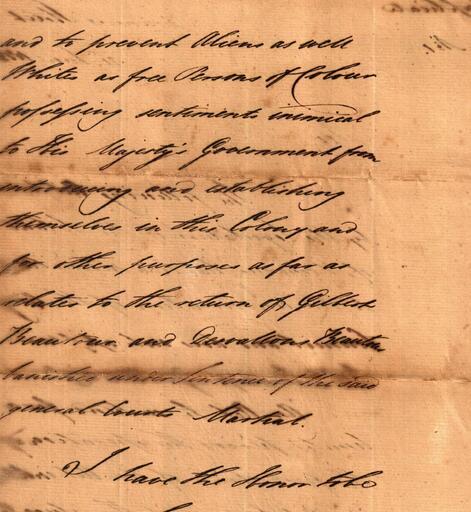 and to prevent Aliens as well
Whites as free Persons of Colour
professing sentiments inimical
to His Majesty's Government from
introducing and establishing
themselves in this Colony and
for other purposes as far as
relates to the return of Gilbert
and
banished under Sentence of the said
general Courts Martial.
I have the Honor to be